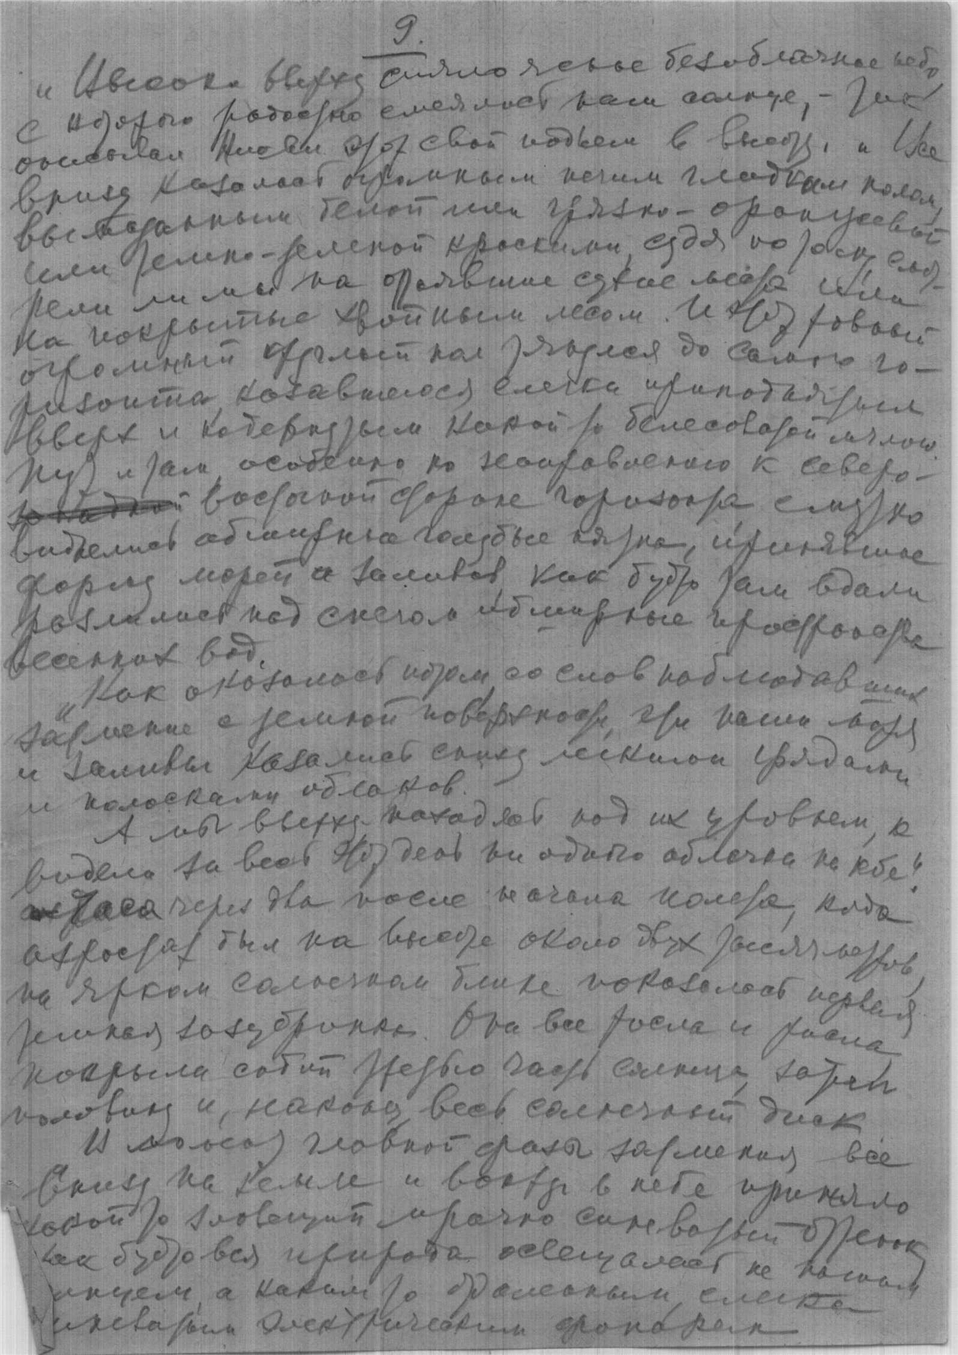 9.
"И высоко вверху сияло ясное безоблачное небо,
с которого радостно смеялось нам солнце, - так
описывал Нисби этот свой подъем в высоту. "Все
внизу казалось огромным неким гладким полем,
выкрашенным белой или грязно-оранжевой
или темно-зеленой красками, судя по тому, смот-
рели ли мы на оттаявшие сухие места или
на покрытые хвойным лесом. И этот ровный
огромный круглый пол тянулся до самого го-
ризонта, казавшегося слегка приподнятым
вверх и подернутым какой то белесоватой мглою.
Тут и там особенно по направлению к северо-
восточной стороне горизонта смутно
виднелись обширные голубые пятна, принявшие
форму морей и заливов, как будто там вдали
разлились под снегом обширные пространства
весенних вод.
"Как оказалось потом, со слов наблюдавших
затмение с земной поверхности, эти наши моря
и заливы казались снизу легкими грядами
и полосками облаков.
А мы вверху, находясь над их уровнем, не
видели за весь этот день ни одного облачка на небе".
Часа через два после начала полета, когда
аэростат был на высоте около двух тысяч метров,
на ярком солнечном блике показалась первая
темная зазубринка. Она все росла и росла
покрыла собой третью часть солнца, затем
половину и, наконец, весь солнечный диск
В момент главной фазы затмения все
внизу на земле и вокруг в небе приняло
какой то зловещий мрачно синеватый оттенок
как будто вся природа освещалась не нашим
солнцем, а каким то огромным, слегка
синеватым электрическим фонарем